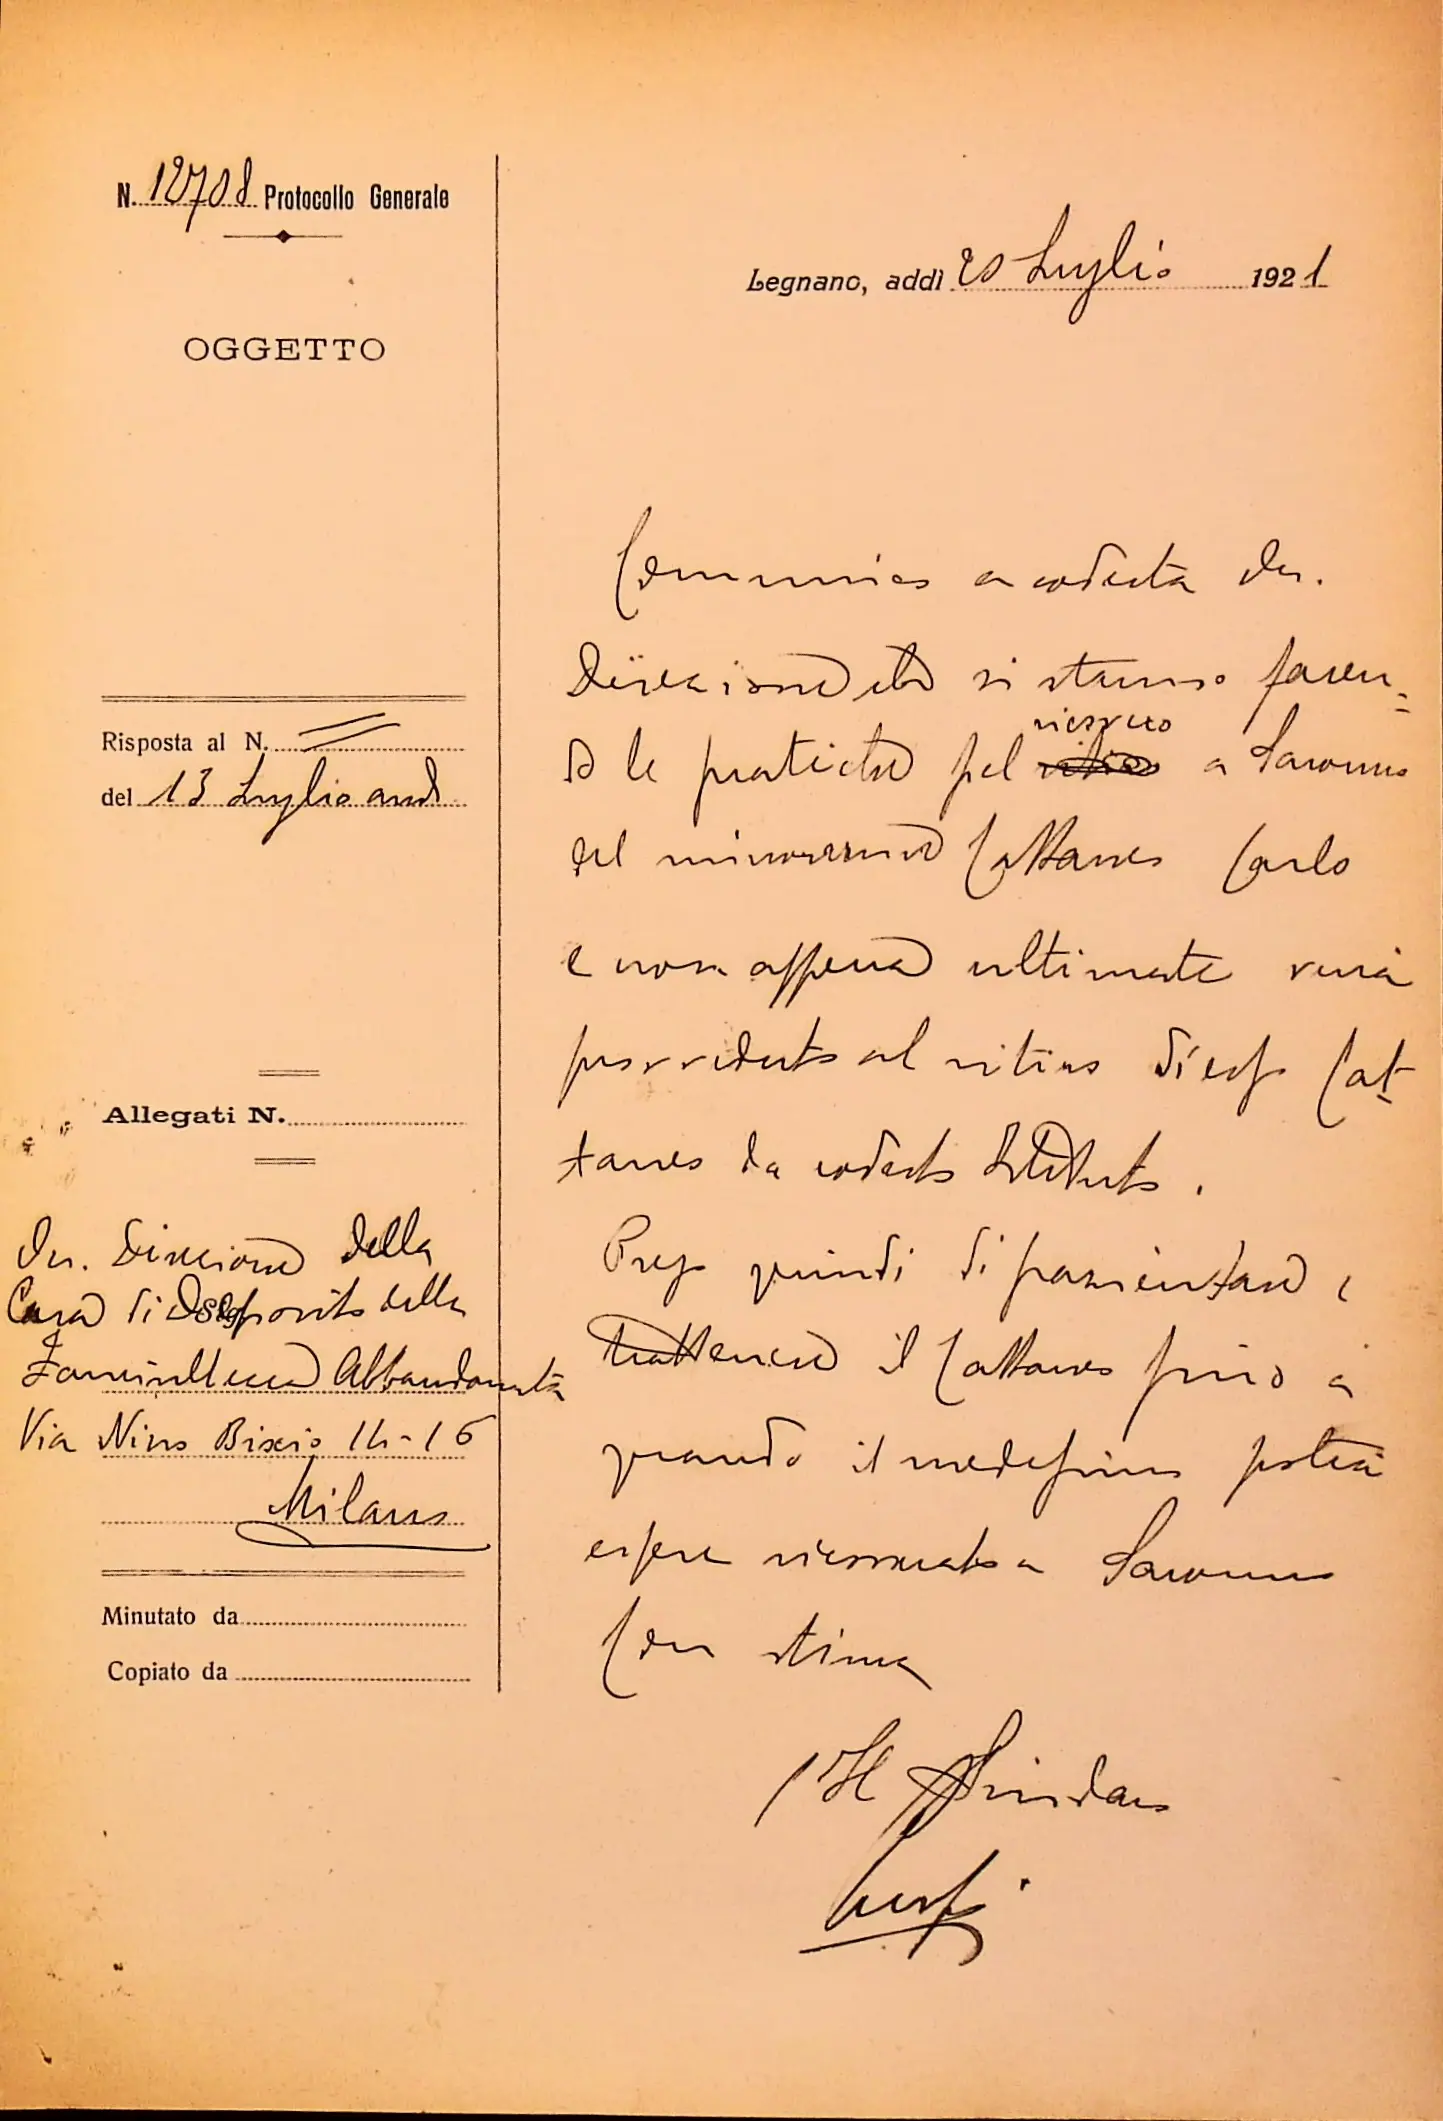 N. 12708 Protocollo Generale
Legnano, addì 20 Luglio 1921
OGGETTO
Risposta al N.
del 13 Luglio and
Allegati N.
On. Direzione della
Casa di Deposito della
Fanciullezza Abbandonata
Via Nino Bixio 14-16
Milano
Minutato da
Copiato da
Comunico a codesta On.
Direzione che si stanno facen-
do le pratiche pel ricovero a Saronno
del minorenne Cattaneo Carlo
e non appena ultimate verrà
provveduto al ritiro di esso Cat-
taneo da codesto Istituto.
Prego quindi di pazientare e
trattenere il Cattaneo fino a
quando il medesimo potrà
essere ricoverato a Saronno
Con stima
Il Sindaco